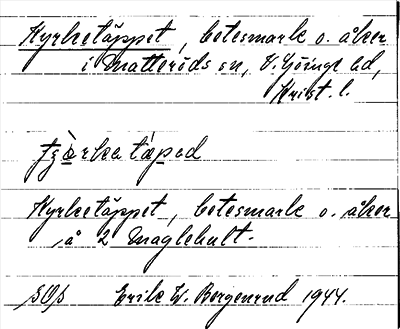 Kyrketäppet, betesmark o. åker
i Matteröds sn, V. Göinge hd,
Krist. l.
Kyrketäppet, betesmark o. åker
å 2 Maglehult.
Erik W. Bergenrud 1944.